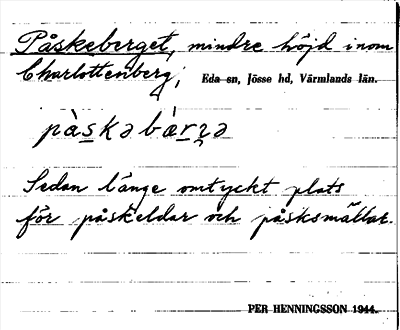 Påskeberget, mindre höjd inom
Charlottenberg; Eda sn, Jösse hd, Värmlands län.
pàs̲kəbár̲n̥ə
Sedan länge omtyckt plats
för påskeldar och påsksmällar.
PER HENNINGSSON 1944.